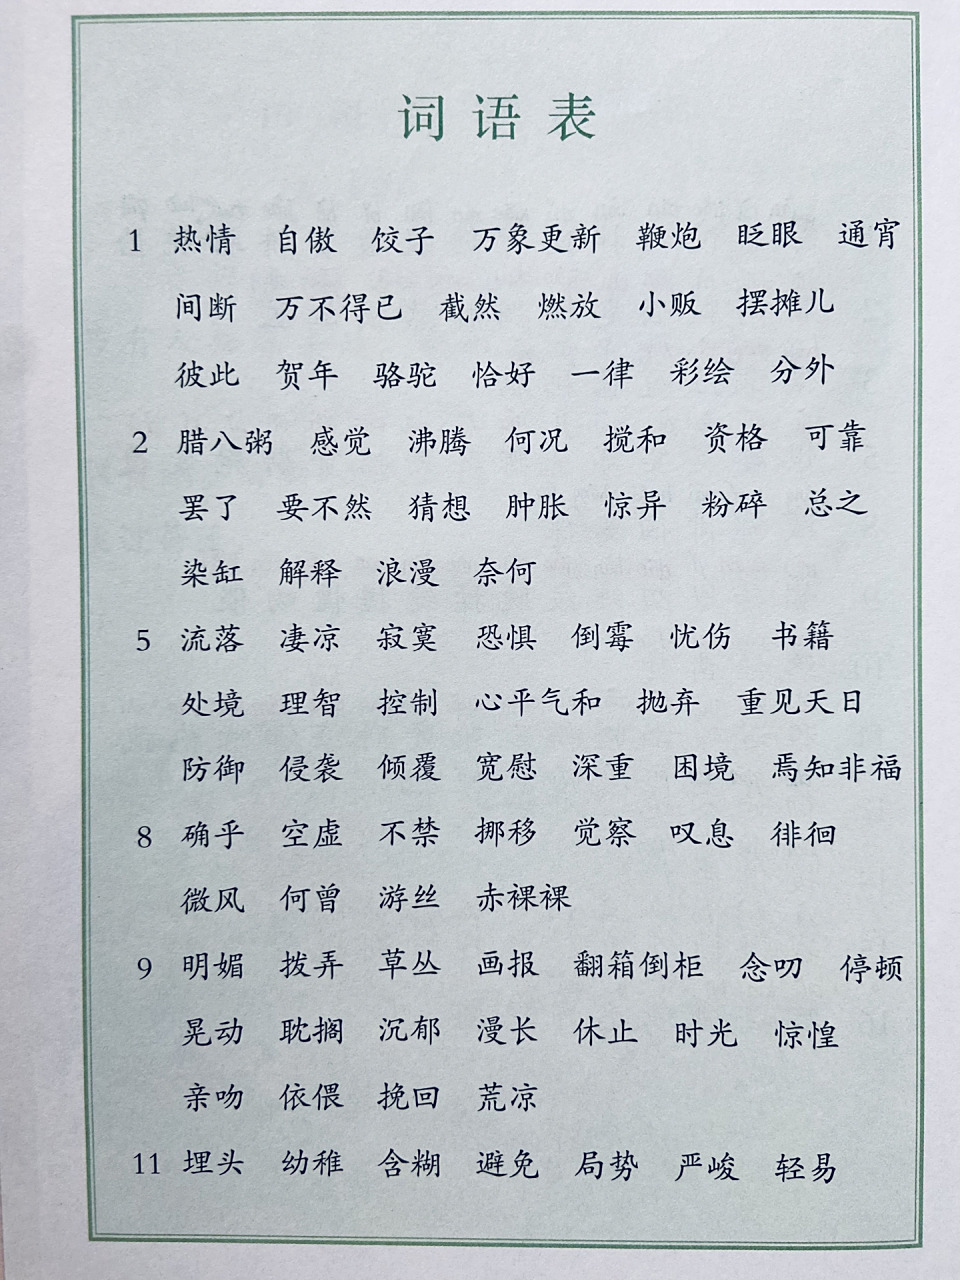 词语表
1 热情 自傲 饺子 万象更新 鞭炮 眨眼 通宵
间断 万不得已 截然 燃放 小贩 摆摊儿
彼此 贺年 骆驼 恰好 一律 彩绘 分外
2 腊八粥 感觉 沸腾 何况 搅和 资格 可靠
罢了 要不然 猜想 肿胀 惊异 粉碎 总之
染缸 解释 浪漫 奈何
5 流落 凄凉 寂寞 恐惧 倒霉 忧伤 书籍
处境 理智 控制 心平气和 抛弃 重见天日
防御 侵袭 倾覆 宽慰 深重 困境 焉知非福
8 确乎 空虚 不禁 挪移 觉察 叹息 徘徊
微风 何曾 游丝 赤裸裸
9 明媚 拨弄 草丛 画报 翻箱倒柜 念叨 停顿
晃动 耽搁 沉郁 漫长 休止 时光 惊惶
亲吻 依偎 挽回 荒凉
11 埋头 幼稚 含糊 避免 局势 严峻 轻易